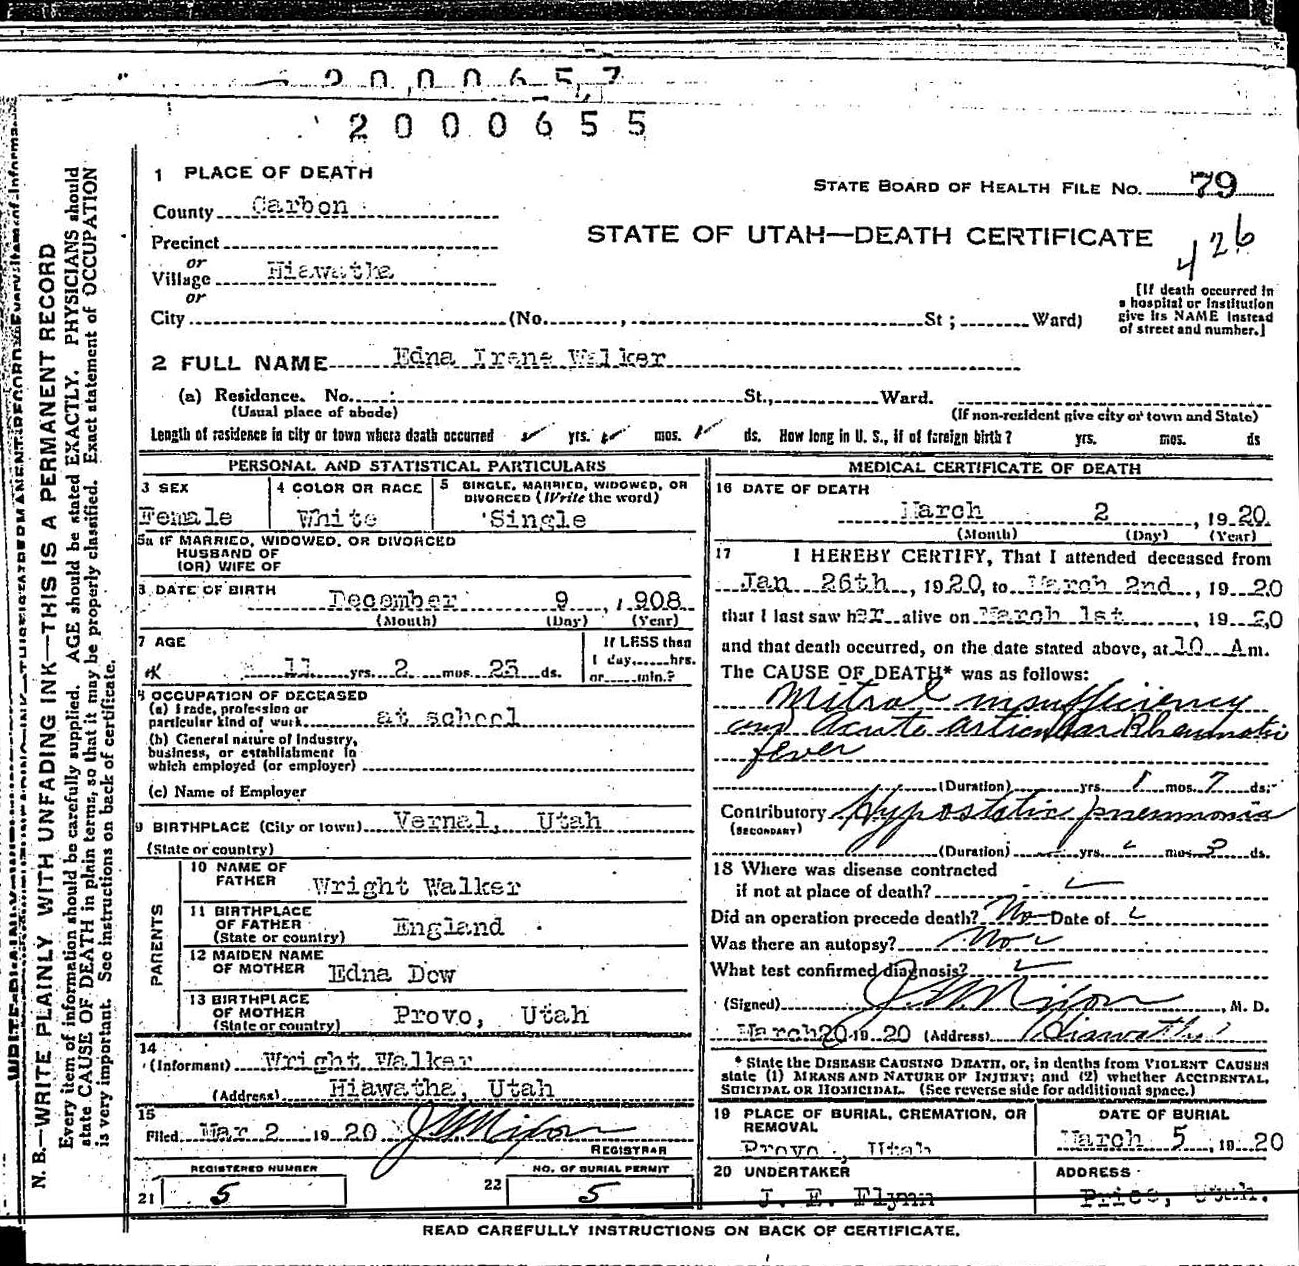 2000657
2000655
1 PLACE OF DEATH
STATE BOARD OF HEALTH FILE NO. 79
County Carbon
STATE OF UTAH—DEATH CERTIFICATE
426
Precinct
or
Village Hiawatha
or
City (No. , St; Ward)
[If death occurred in
a hospital or institution
give its NAME instead
of street and number.]
2 FULL NAME Edna Irene Walker
(a) Residence. No. St., Ward.
(Usual place of abode) (If non-resident give city or town and State)
Length of residence in city or town where death occurred yrs. mos. ds. How long in U. S., if of foreign birth? yrs. mos. ds
PERSONAL AND STATISTICAL PARTICULARS
3 SEX
Female
4 COLOR OR RACE
White
5 SINGLE, MARRIED, WIDOWED, OR
DIVORCED (Write the word)
Single
5a IF MARRIED, WIDOWED, OR DIVORCED
HUSBAND OF
(OR) WIFE OF
6 DATE OF BIRTH December 9, 1908
(Month) (Day) (Year)
7 AGE
11 yrs. 2 mos. 23 ds.
If LESS than
1 day,.....hrs.
or.....min.?
8 OCCUPATION OF DECEASED
(a) Trade, profession or
particular kind of work at school
(b) General nature of industry,
business, or establishment in
which employed (or employer)
(c) Name of Employer
9 BIRTHPLACE (City or town) Vernal, Utah
(State or country)
PARENTS
10 NAME OF
FATHER Wright Walker
11 BIRTHPLACE
OF FATHER England
(State or country)
12 MAIDEN NAME
OF MOTHER Edna Dow
13 BIRTHPLACE
OF MOTHER Provo, Utah
(State or country)
14
(Informant) Wright Walker
(Address) Hiawatha, Utah
15
Filed Mar 2 1920 J E Nixon
REGISTRAR
REGISTERED NUMBER
21 5
NO. OF BURIAL PERMIT
22 5
MEDICAL CERTIFICATE OF DEATH
16 DATE OF DEATH
March 2, 1920.
(Month) (Day) (Year)
17 I HEREBY CERTIFY, That I attended deceased from
Jan 26th, 1920, to March 2nd, 1920
that I last saw her alive on March 1st, 1920
and that death occurred, on the date stated above, at 10 A m.
The CAUSE OF DEATH* was as follows:
Mitral insufficiency
and Acute articular Rheumatic
fever
(Duration) yrs. 1 mos. 7 ds.
Contributory Hypostatic pneumonia
(SECONDARY)
(Duration) yrs. mos. 3 ds.
18 Where was disease contracted
if not at place of death?
Did an operation precede death? No Date of
Was there an autopsy? No
What test confirmed diagnosis?
(Signed) J E Nixon, M. D.
March 20 1920 (Address) Hiawatha
* State the DISEASE CAUSING DEATH, or, in deaths from VIOLENT CAUSES
state (1) MEANS AND NATURE OF INJURY; and (2) whether ACCIDENTAL,
SUICIDAL OR HOMICIDAL. (See reverse side for additional space.)
19 PLACE OF BURIAL, CREMATION, OR
REMOVAL
Provo, Utah
DATE OF BURIAL
March 5, 1920
20 UNDERTAKER
J. E. Flynn
ADDRESS
Price, Utah.
READ CAREFULLY INSTRUCTIONS ON BACK OF CERTIFICATE.
N. B.—WRITE PLAINLY WITH UNFADING INK—THIS IS A PERMANENT RECORD
Every item of information should be carefully supplied. AGE should be stated EXACTLY. PHYSICIANS should
state CAUSE OF DEATH in plain terms, so that it may be properly classified. Exact statement of OCCUPATION
is very important. See instructions on back of certificate.